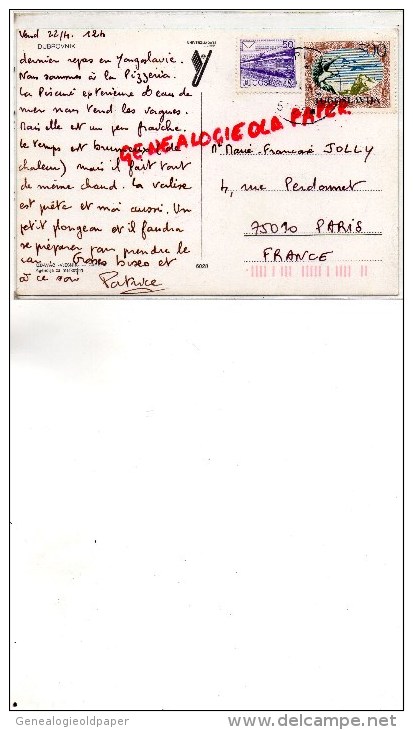 Vend 22/4. 12h
DUBROVNIK
dernier repas en Yougoslavie.
Nous sommes à la Pizzeria.
La Piscine extérieure d'eau de
mer nous tend les vagues.
Mais elle est un peu fraîche.
Le temps est brumeux (de
chaleur) mais il fait tout
de même chaud. La valise
est prête et moi aussi. Un
petit plongeon et il faudra
se préparer pour prendre le
car. Grosses bises et
à ce soir Patrice
Agencija za marketing
6028
UNIVERZIJADA '87
50
JUGOSLAVIJA
JUGOSLAVIJA
GENEALOGIEOLD PAPER
Mle Marie-Françoise JOLLY
4, rue Perdonnet
75010 PARIS
FRANCE
Genealogieoldpaper
www.delcampe.net